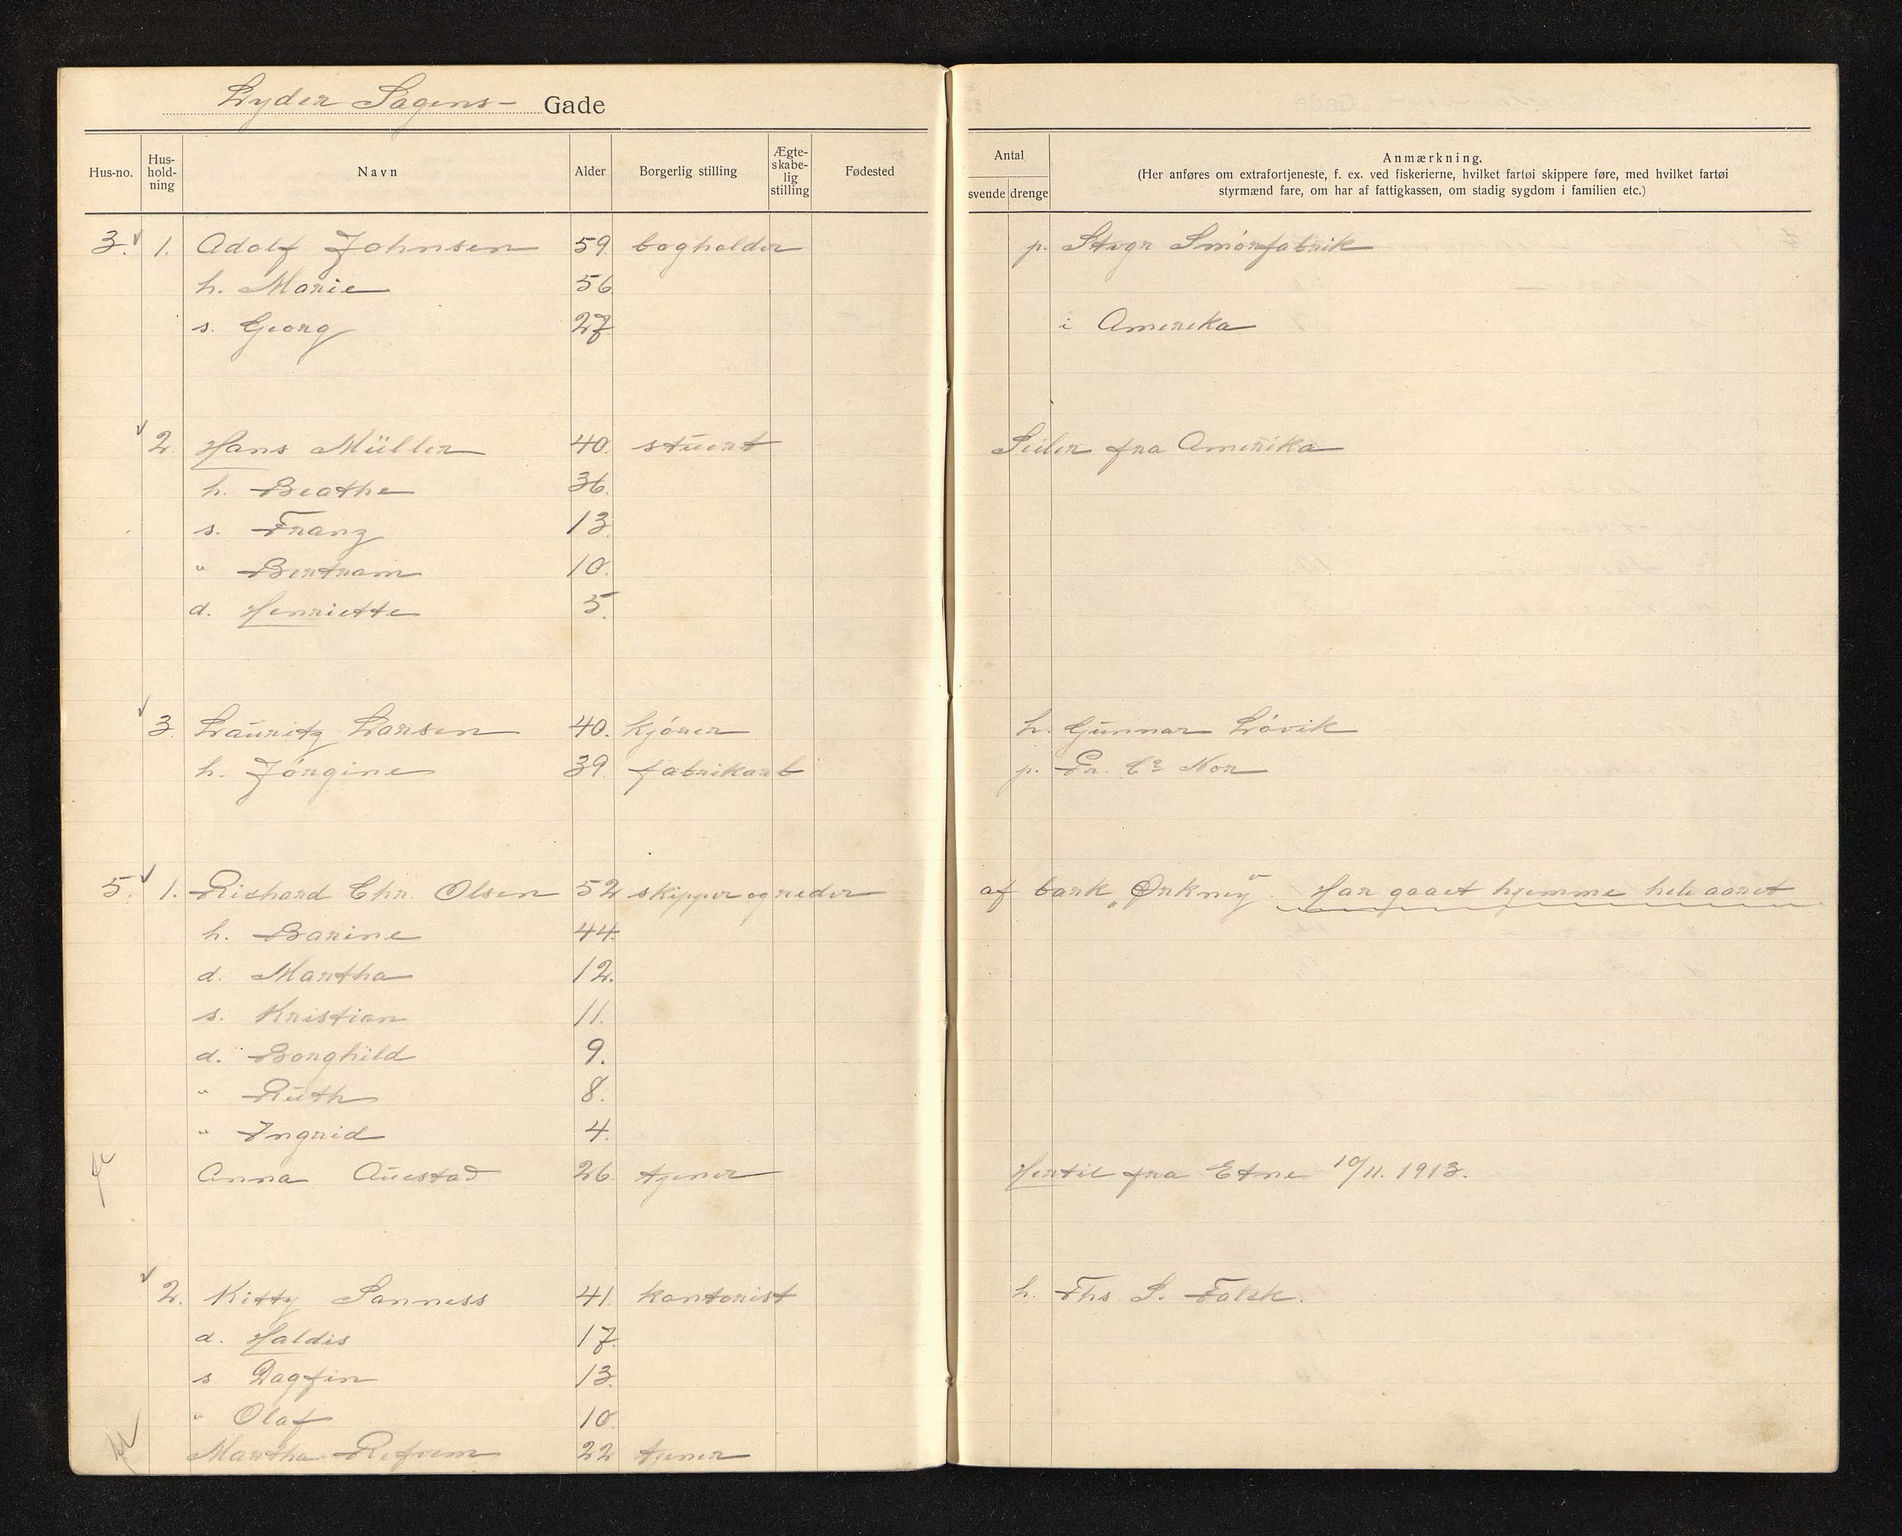 Lyder Sagens- Gade
Hus-no. Hus-hold-ning Navn Alder Borgerlig stilling Ægte-skabe-lig stilling Fødested Antal svende drenge Anmærkning.
(Her anføres om extrafortjeneste, f. ex. ved fiskerierne, hvilket fartøi skippere føre, med hvilket fartøi
styrmænd fare, om har af fattigkassen, om stadig sygdom i familien etc.)
3. 1. Adolf Johnsen 59. bogholder p. Stvgr Smörfabrik
h. Marie 56
s. Georg 27 i Amerika
2. Hans Müller 40. stuert Seiler fra Amerika
h. Beathe 36.
s. Franz 13.
" Bertram 10.
d. Henriette 5.
3. Lauritz Larsen 40. kjörer h. Gunnar Lövik
h. Jörgine 39. fabrikarb p. Pr. Co Nor
5. 1. Richard Chr. Olsen 52 skipper og reder af bark „Orkney". Har gaaet hjemme hele aaret
h. Barine 44.
d. Martha 12.
s. Kristian 11.
d. Borghild 9.
" Ruth 8.
" Ingrid 4.
Anna Auestad 26. tjener Hertil fra Etne 10/11. 1913.
2. Kitty Sanness 41. kontorist h. Ths. S. Falck.
d. Haldis 17.
s Dagfin 13.
" Olaf 10.
Martha 22 tjener